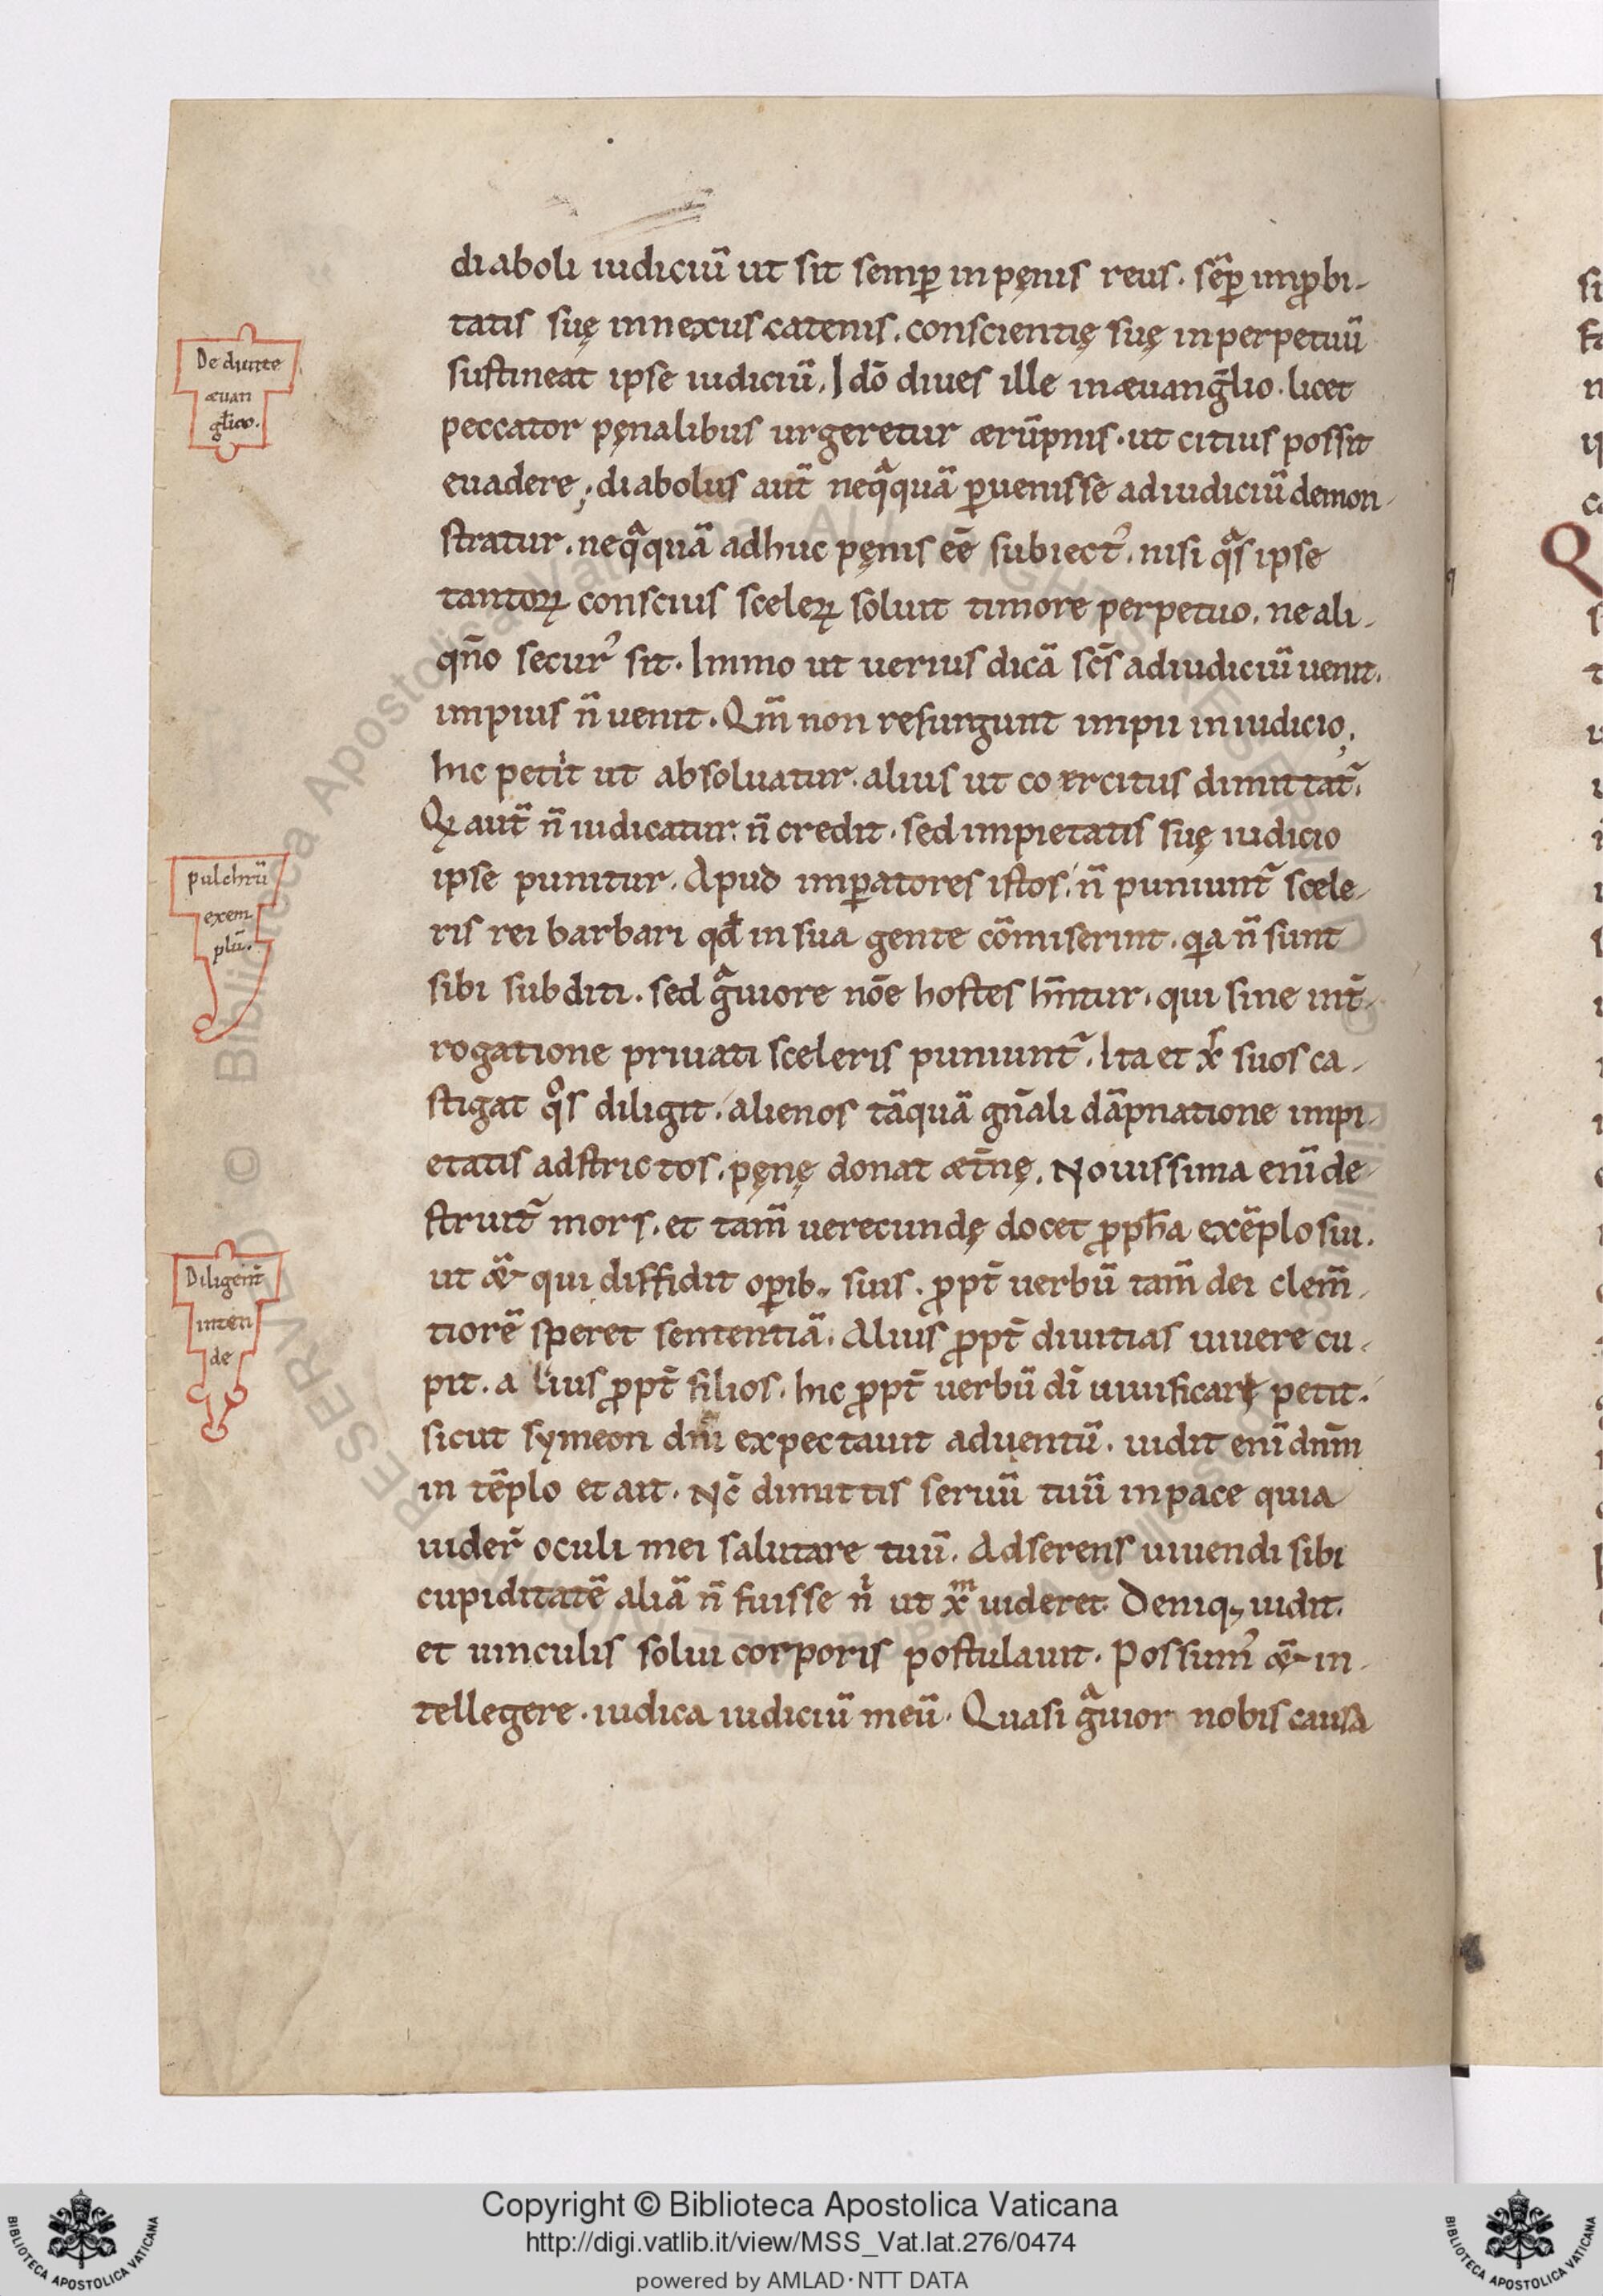 diaboli iudiciū ut sit semꝑ in pęnis reus. sēꝑ imꝓbi-
tatis suę innexus catenis. conscientię suę in perpetuū
De diuite
sustineat ipse iudiciū. Idō diues ille in æuangl̄io. licet
æuan
gl̄ico.
peccator pęnalibus urgeretur ærūpnis. ut citius possit
euadere; diabolus aut̄ neqͣquā ꝑuenisse ad iudiciū demon-
stratur. neqͣquā adhuc pęnis eē subiectꝰ. nisi qͣs ipse
tantoꝝ conscius sceleꝝ soluit timore perpetuo. ne ali-
qn̄o securꝰ sit. Immo ut uerius dicā scs̄ ad iudiciū uenit.
impius n̄ uenit. Qm̄ non resurgunt impii in iudicio,
hic petit ut absoluatur. alius ut coercitus dimittat᷑.
Qi aut̄ n̄ iudicatur. n̄ credit. sed impietatis suę iudicio
pulchrū
ipse punitur. Apud imꝑatores istos. n̄ puniunt᷑ scele-
exem
plū.
ris rei barbari qđ in sua gente cōmiserint. qia n̄ sunt
sibi subditi. sed gͣuiore nōe hostes hn̄tur. qui sine int̄-
rogatione priuati sceleris puniunt᷑. Ita et xr̄ suos ca-
stigat qͦs diligit. alienos tāquā gn̄ali dāpnatione impi-
etatis adstrictos. pęnę donat æt̄nę. Nouissima enī de-
struit᷑ mors. et tam̄ uerecundę docet ꝓph̄a exēplo sui.
Diligent̄
inten
de
ut ǣ qui diffidit oꝑib; suis. ꝓpt̄ uerbū tam̄ dei clem̄-
tiorē speret sententiā. Alius ꝓpt̄ diuitias uiuere cu-
pit. alius ꝓpt̄ filios. hic ꝓpt̄ uerbū dī uiuificari petit.
sicut symeon dn̄i expectauit aduentū. uidit enī dnm̄
in tēplo et ait. Nc̄ dimittis seruū tuū in pace quia
uider̄ oculi mei salutare tuū. Adserens uiuendi sibi
cupiditatē aliā n̄ fuisse nⁱ ut xm̄ uideret. Deniq; uidit.
et uinculis solui corporis postulauit. Possumꝰ ǣ in-
tellegere. iudica iudiciū meū. Quasi gͣuior nobis causa
Copyright © Biblioteca Apostolica Vaticana
http://digi.vatlib.it/view/MSS_Vat.lat.276/0474
powered by AMLAD·NTT DATA
BIBLIOTECA APOSTOLICA VATICANA
BIBLIOTECA APOSTOLICA VATICANA